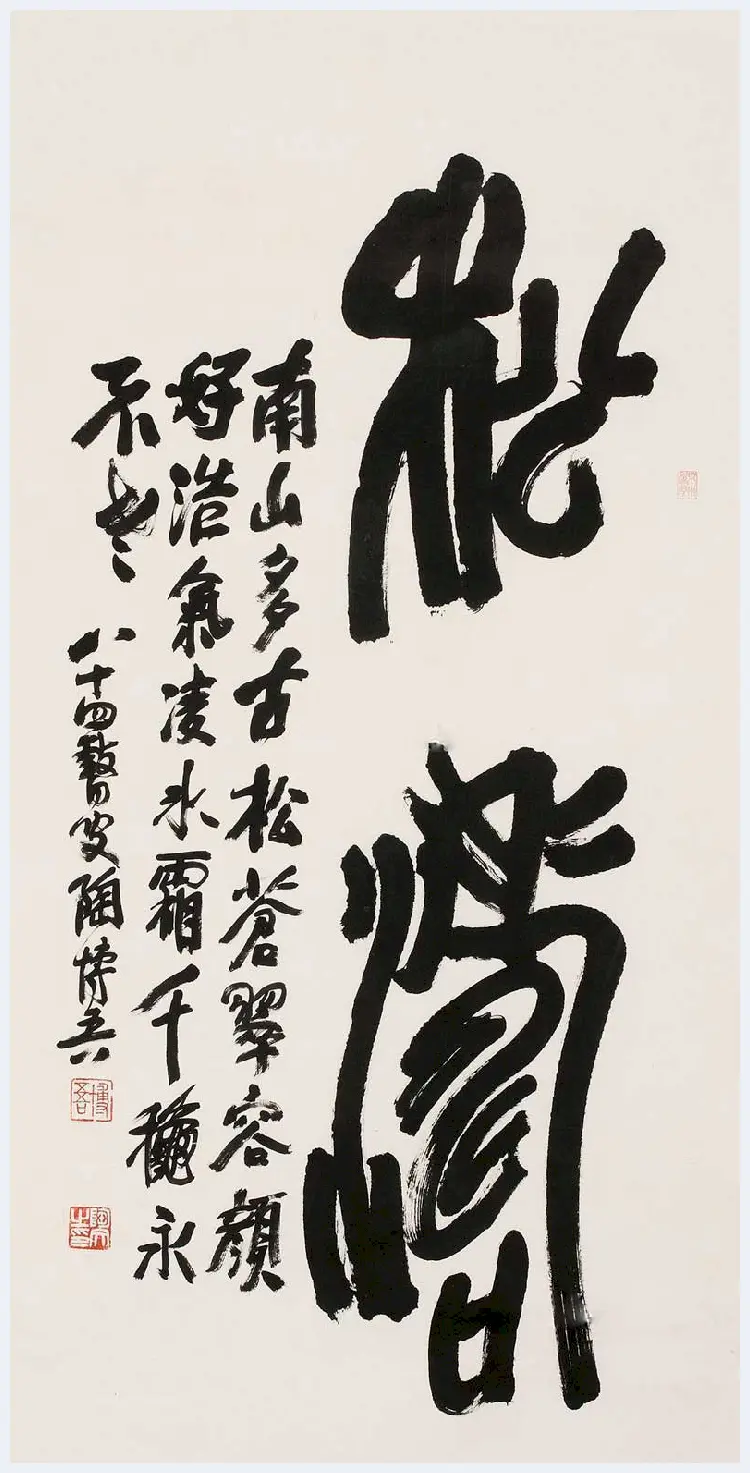 松寿
南山多古松蒼翠容顔
好浩氣凌冰霜千龝永
不老
八十四叟陶博吾
博吾